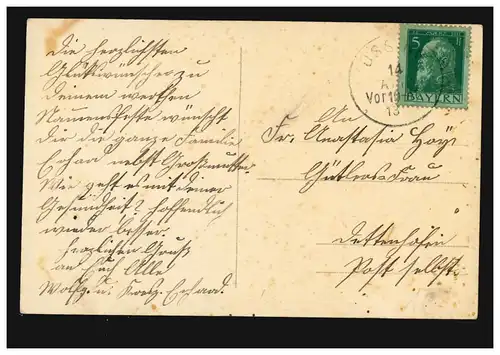 Die herzlichsten
Glückwünsche zu
Deinem werthen
Namensfeste wünscht
Dir die ganze Familie
Erhard nebst Großmutter.
Wie geht es mit deiner
Gesundheit? hoffendlich
wieder besser.
Herzlichen Gruß
an Euch Alle
Wolfg. u. Kresz. Erhard.
14
Vor
13
5
BAYERN
An
Fr. Anastasia
Gütlers-Frau
Dettenhofen
Post selbst.